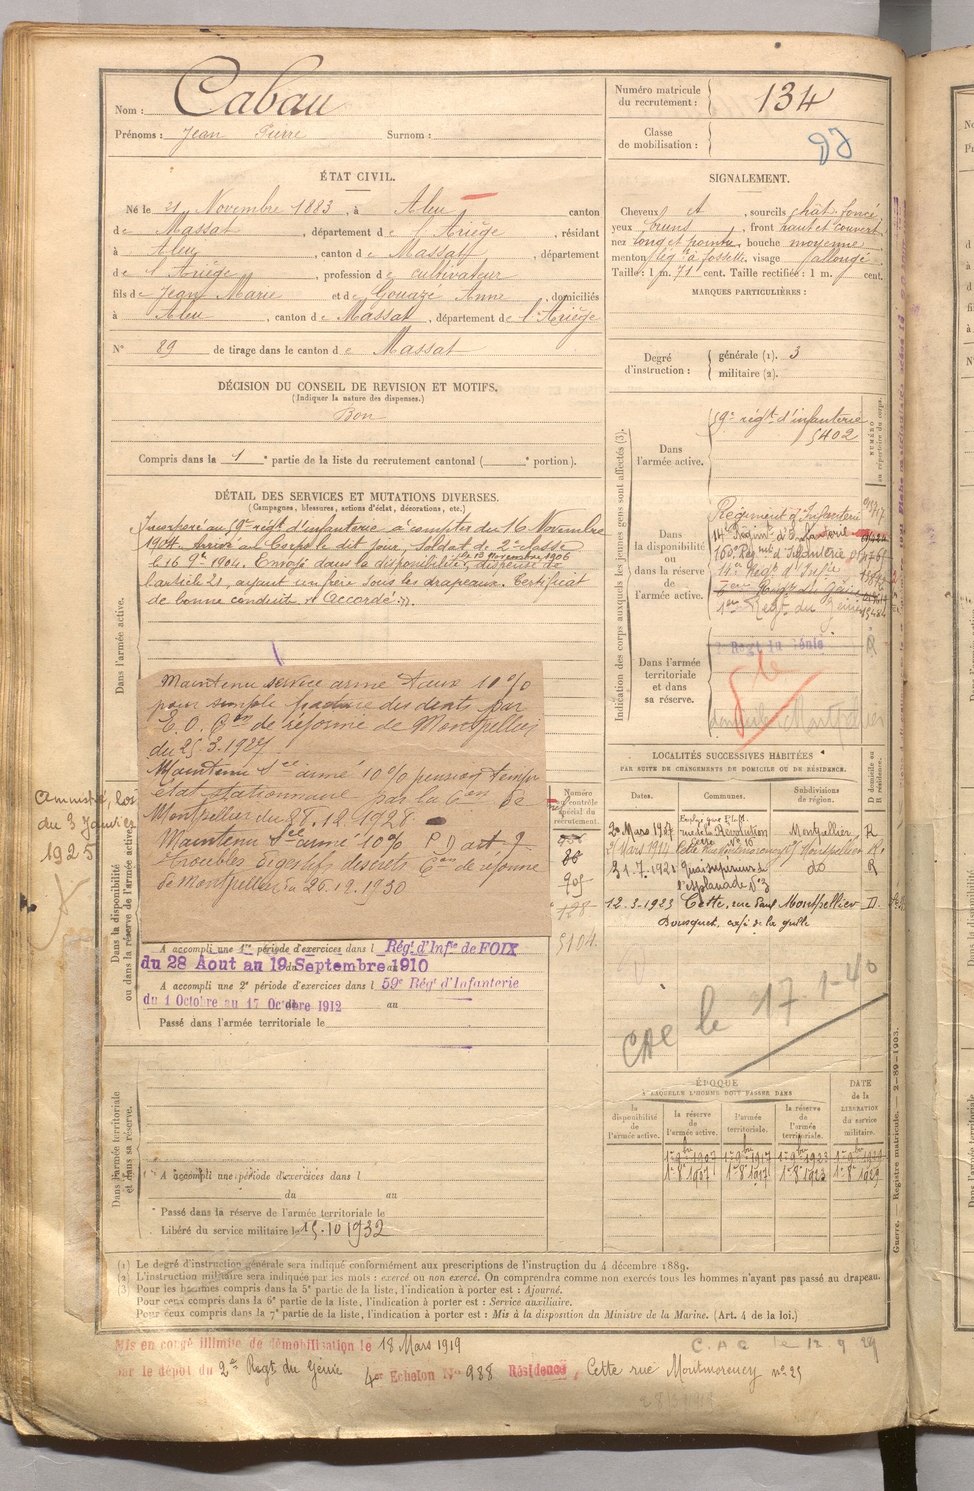 Nom : Cabau
Prénoms : Jean Pierre Surnom :
Numéro matricule du recrutement : 134
Classe de mobilisation :
ÉTAT CIVIL.
Né le 21 Novembre 1883, à Aleu, canton
de Massat, département de l'Ariège, résidant
à Aleu, canton de Massat, département
de l'Ariège, profession de cultivateur
fils de Jean Marie et de Gouazé Anne, domiciliés
à Aleu, canton de Massat, département de l'Ariège
N° 89 de tirage dans le canton de Massat
SIGNALEMENT.
Cheveux et, sourcils chât. foncé
yeux bruns, front haut et couvert
nez long et pointu, bouche moyenne
menton à fossette, visage allongé
Taille : 1 m. 71 cent. Taille rectifiée : 1 m. cent.
MARQUES PARTICULIÈRES :
Degré d'instruction : générale (1). 3
militaire (2).
DÉCISION DU CONSEIL DE REVISION ET MOTIFS.
(Indiquer la nature des dispenses.)
Bon
Compris dans la 1e partie de la liste du recrutement cantonal ( e portion).
DÉTAIL DES SERVICES ET MUTATIONS DIVERSES.
(Campagnes, blessures, actions d'éclat, décorations, etc.)
Dans l'armée active.
Incorporé au 59e régt d'infanterie à compter du 16 Novembre
1904. Arrivé au Corps le dit jour, Soldat de 2e classe
le 16 9bre 1904. Envoyé dans la disponibilité, le 13 Novembre 1906 dispensé de
l'article 21, ayant un frère sous les drapeaux. Certificat
de bonne conduite "Accordé".
Maintenu service armé taux 10 %
pour simple fracture des dents par
C on de réforme de Montpellier
du 25.3.1927
Maintenu Sce armé 10 % pension tempre
état stationnaire par la Con de
Montpellier du 28.12.1928
Maintenu Sce armé 10 % P D art. 7
troubles digestifs discrets Con de réforme
de Montpellier du 26.12.1930
Amnistié, loi
du 3 Janvier
1925
Dans la disponibilité ou dans la réserve de l'armée active.
A accompli une 1re période d'exercices dans l Rég. d'Infie de FOIX
du 28 Aout au 19 Septembre 1910
A accompli une 2e période d'exercices dans l 59e Rég. d'Infanterie
du 1 Octobre au 17 Octobre 1912 au
Passé dans l'armée territoriale le
Dans l'armée territoriale et dans sa réserve.
A accompli une période d'exercices dans l
du au
Passé dans la réserve de l'armée territoriale le
Libéré du service militaire le 15.10 1932
Indication des corps auxquels les jeunes gens sont affectés (3).
NUMÉRO au répertoire du corps.
Dans l'armée active.
59e régt d'infanterie
5402
Dans la disponibilité ou dans la réserve de l'armée active.
Régiment d'Infanterie
14e Régimt d'Infanterie
160e Régimt d'Infanterie
14e Régt d'Infie
1er Régt du Génie
Dans l'armée territoriale et dans sa réserve.
Régt du Génie
domicile Montpellier
Numéro au contrôle spécial du recrutement.
5104
LOCALITÉS SUCCESSIVES HABITÉES
PAR SUITE DE CHANGEMENTS DE DOMICILE OU DE RÉSIDENCE.
Dates. Communes. Subdivisions de région. D domicile ou R résidence.
rue de la Révolution Montpellier R
Cette rue Montmorency 25 Montpellier R
31.7.1921 Quai supérieur de l'Esplanade N°3 do R
12.3.1923 Cette, rue Paul Bousquet, café de la grille Montpellier D.
CAC le 17.1-40
ÉPOQUE
À LAQUELLE L'HOMME DOIT PASSER DANS
la disponibilité de l'armée active. la réserve de l'armée active. l'armée territoriale. la réserve de l'armée territoriale. DATE de la LIBÉRATION du service militaire.
1er 9bre 1907 1er 9bre 1917 1er 9bre 1923 1er 9bre 1929
1er 8bre 1907 1er 8bre 1917 1er 8bre 1923 1er 8bre 1929
Guerre. — Registre matricule. — 2-89-1903.
(1) Le degré d'instruction générale sera indiqué conformément aux prescriptions de l'instruction du 4 décembre 1889.
(2) L'instruction militaire sera indiquée par les mots : exercé ou non exercé. On comprendra comme non exercés tous les hommes n'ayant pas passé au drapeau.
(3) Pour les hommes compris dans la 5e partie de la liste, l'indication à porter est : Ajourné.
Pour ceux compris dans la 6e partie de la liste, l'indication à porter est : Service auxiliaire.
Pour ceux compris dans la 7e partie de la liste, l'indication à porter est : Mis à la disposition du Ministre de la Marine. (Art. 4 de la loi.)
Mis en congé illimité de démobilisation le 18 Mars 1919
C.A.C le 12 9 29
par le dépôt du 2e Regt du Génie 4er Echelon N° 988 Résidence, Cette rue Montmorency n° 25